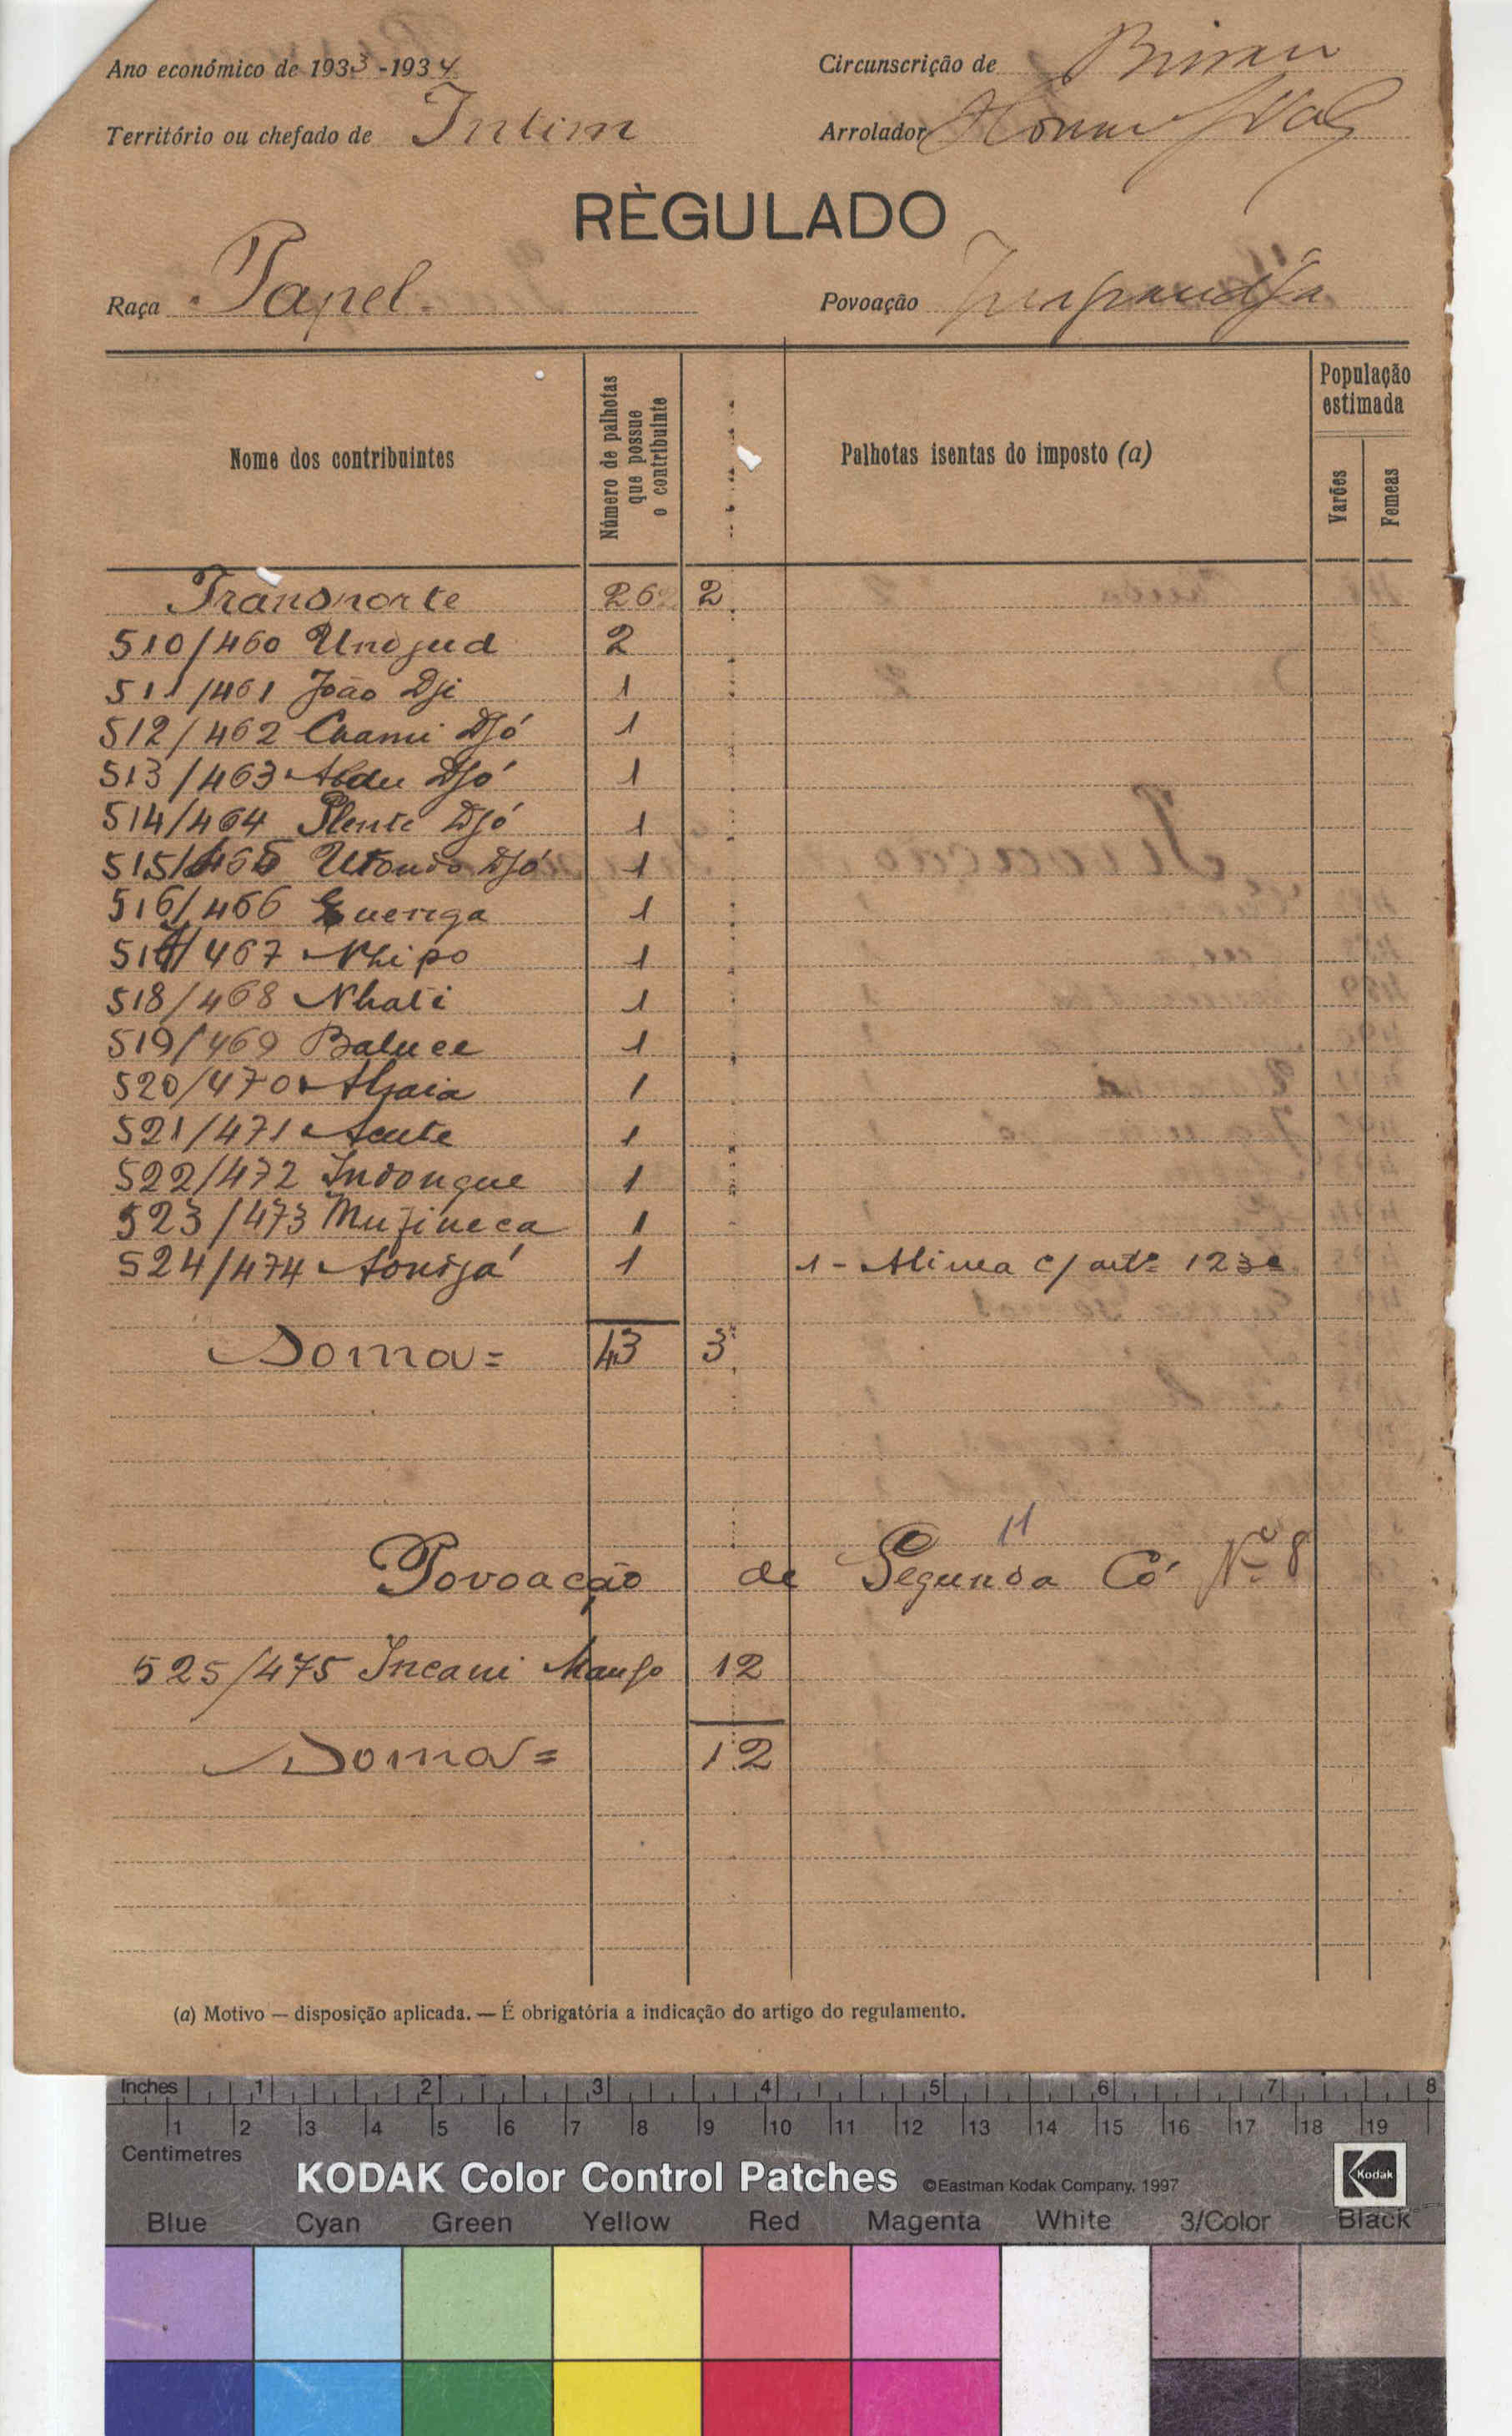 Ano económico de 1933-1934 Circunscrição de Bissau
Território ou chefado de Intim Arrolador
RÈGULADO
Raça Papel Povoação
Nome dos contribuintes Número de palhotas que possue o contribuinte Palhotas isentas do imposto (a) População estimada Varões Femeas
Transporte 26 2
510/460 2
511/461 João Dji 1
512/462 Djó 1
513/463 Abdu Djó 1
514/464 Plente Djó 1
515/465 Utondo Djó 1
516/466 1
517/467 Nhipo 1
518/468 Nhati 1
519/469 Baluce 1
520/470 1
521/471 Acute 1
522/472 Indongue 1
523/473 1
524/474 1 1 - Alinea c/ artº 123º
Soma = 43 3
11
Povoação de Segunda Có Nº 8
525/475 Incani 12
Soma = 12
(a) Motivo — disposição aplicada. — É obrigatória a indicação do artigo do regulamento.
Inches 1 2 3 4 5 6 7 8
1 2 3 4 5 6 7 8 9 10 11 12 13 14 15 16 17 18 19
Centimetres
KODAK Color Control Patches ©Eastman Kodak Company, 1997 Kodak
Blue Cyan Green Yellow Red Magenta White 3/Color Black